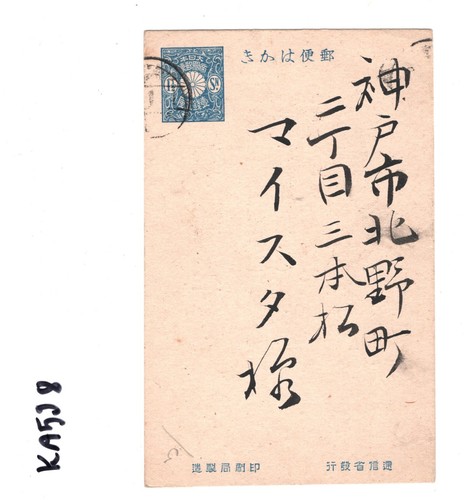 郵便はかき
神戸市北野町
二丁目三本松
マイスタ様
逓信省發行
印刷局製造